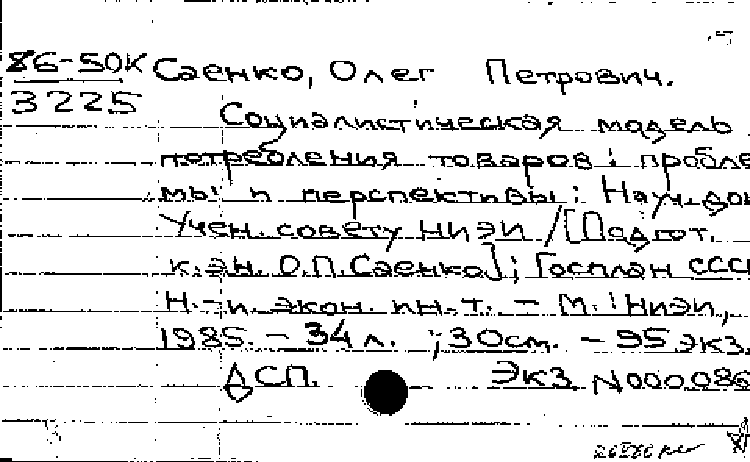 86-50К Саенко, Олег Петрович.
3225
Социалистическая модель
потребления товаров: пробле
мы и перспективы: Науч. док
Учен. совету НИЭИ /[Подгот.
к.эн. О.П.Саенко]; Госплан ССС
Н.-и. экон. ин-т. - М.: НИЭИ,
1985. - 34 л. ; 30 см. - 95 экз.
ДСП. Экз N000086